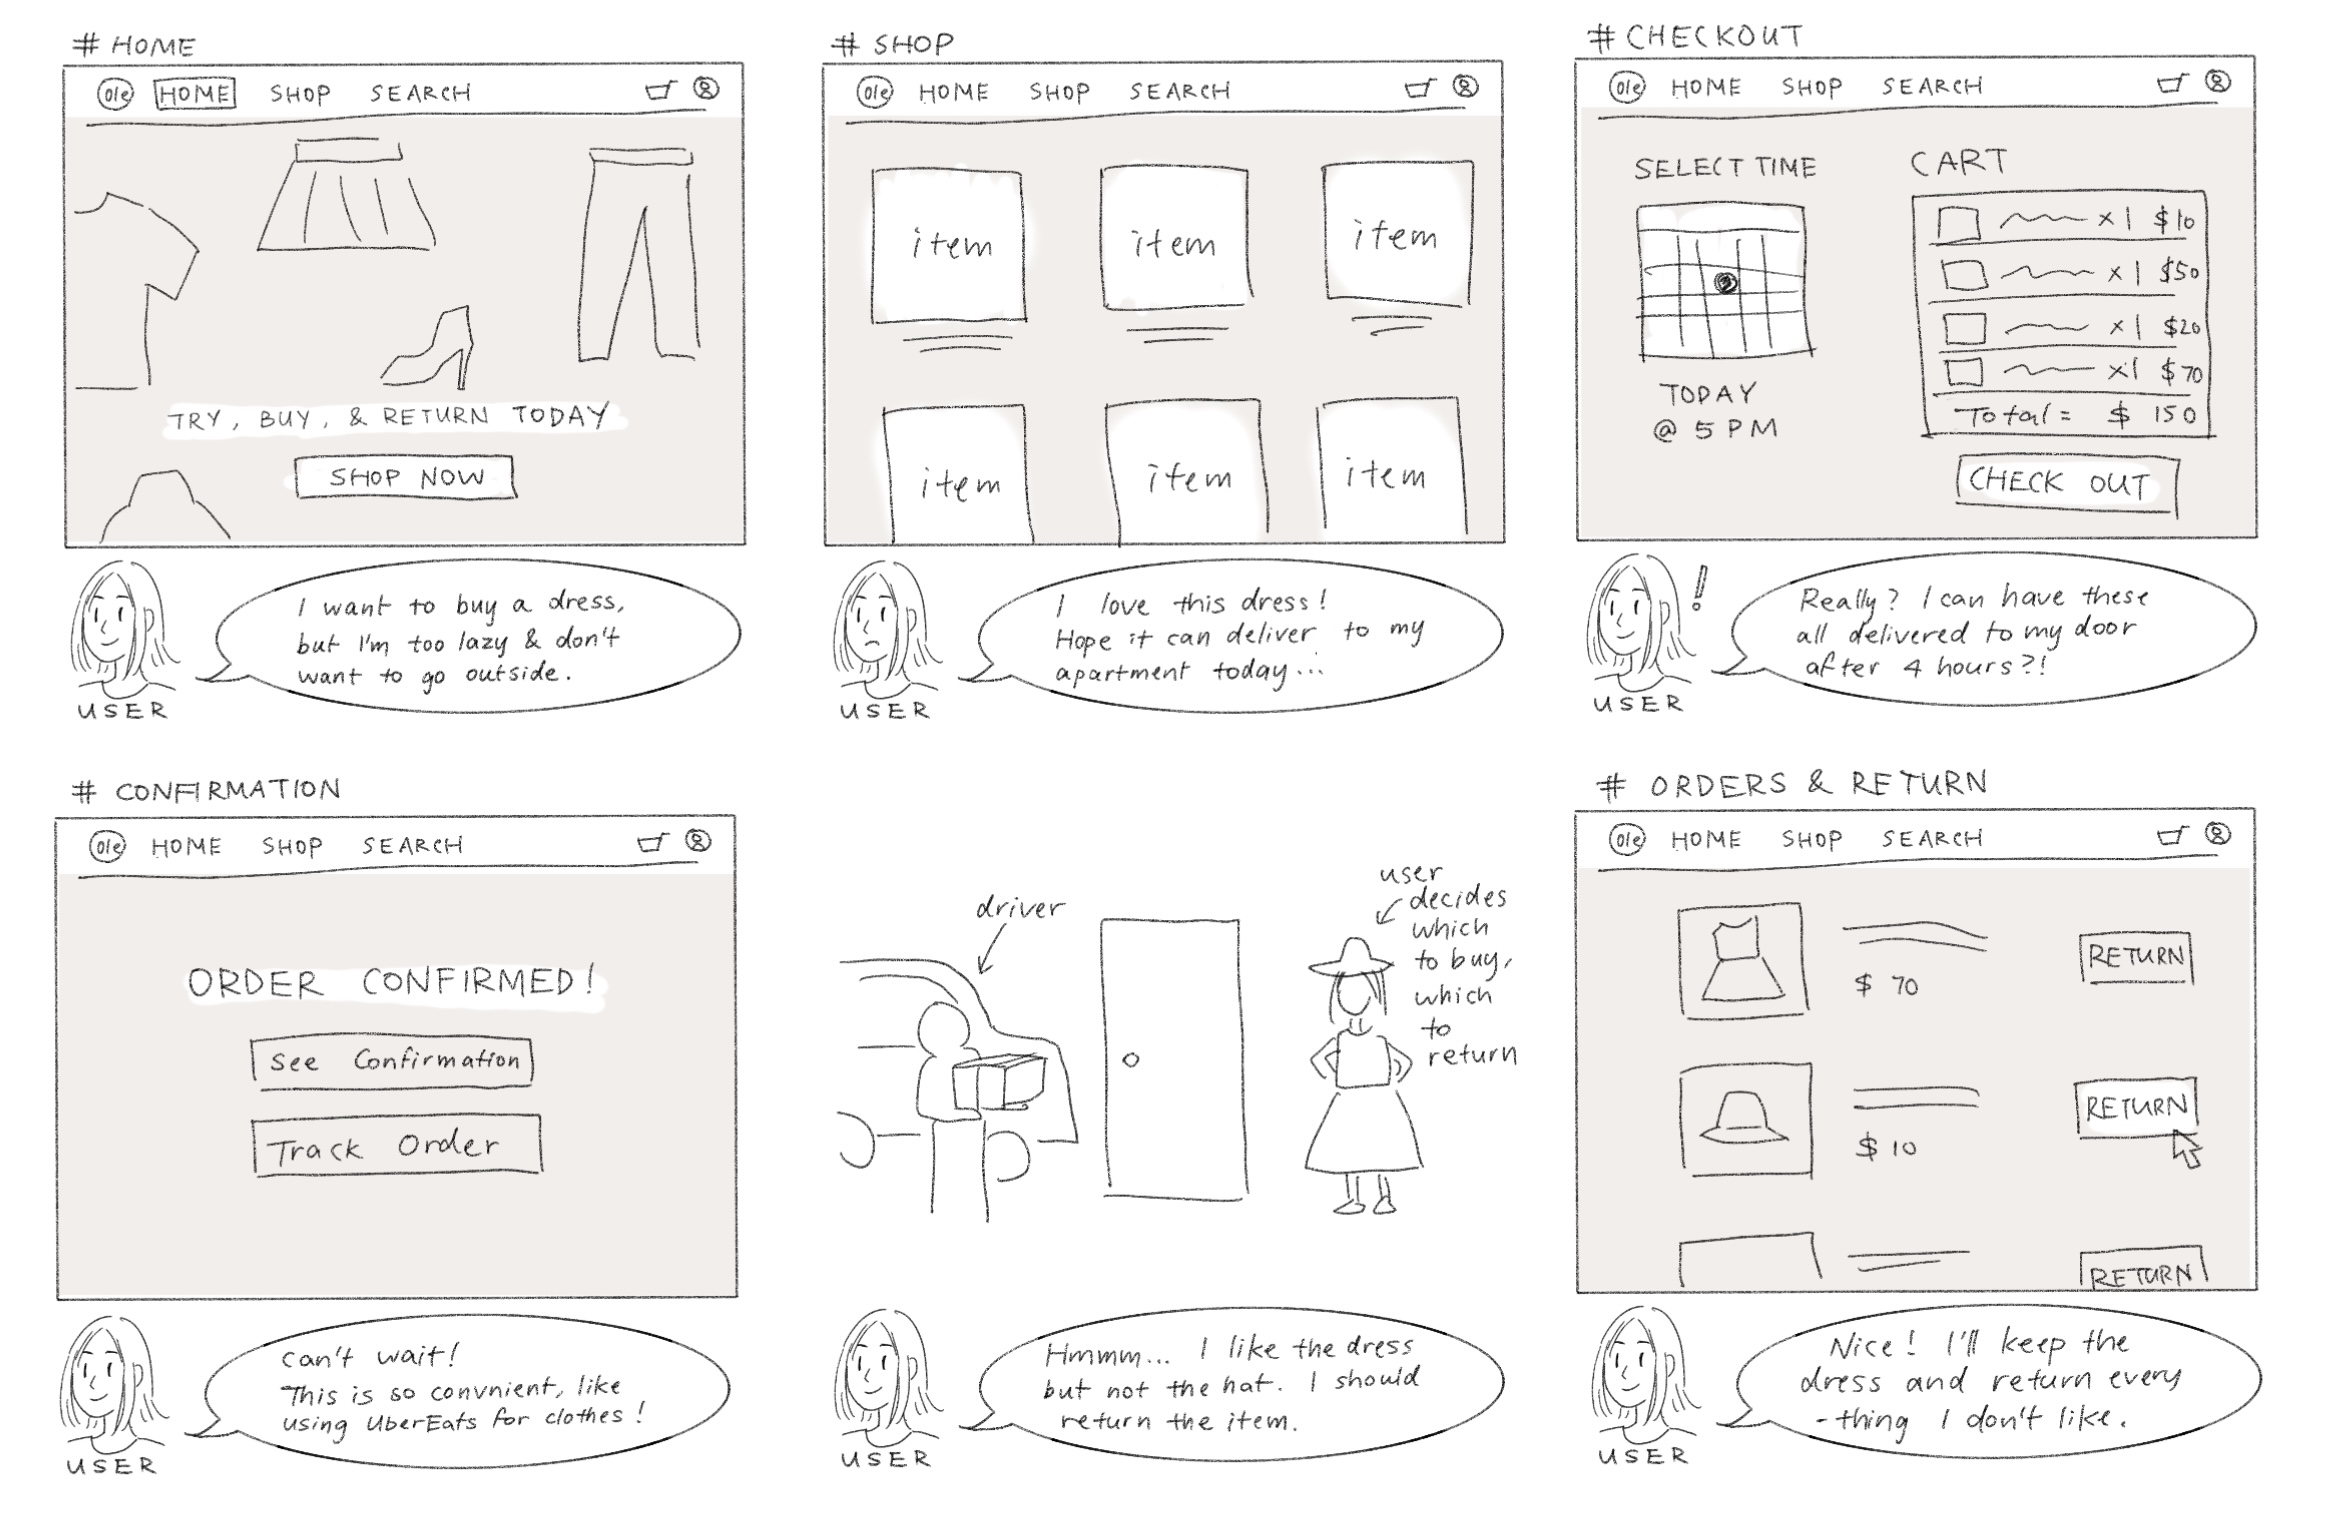 # HOME
Ole HOME SHOP SEARCH
TRY, BUY, & RETURN TODAY
SHOP NOW
I want to buy a dress,
but I'm too lazy & don't
want to go outside.
USER
# SHOP
Ole HOME SHOP SEARCH
item item item
item item item
I love this dress!
Hope it can deliver to my
apartment today...
USER
# CHECKOUT
Ole HOME SHOP SEARCH
SELECT TIME
TODAY
@ 5 PM
CART
x1 $10
x1 $50
x1 $20
x1 $70
Total = $ 150
CHECK OUT
!
Really? I can have these
all delivered to my door
after 4 hours?!
USER
# CONFIRMATION
Ole HOME SHOP SEARCH
ORDER CONFIRMED!
See Confirmation
Track Order
Can't wait!
This is so convnient, like
using UberEats for clothes!
USER
driver
user
decides
which
to buy,
which
to
return
Hmmm... I like the dress
but not the hat. I should
return the item.
USER
# ORDERS & RETURN
Ole HOME SHOP SEARCH
$ 70
RETURN
$ 10
RETURN
RETURN
Nice! I'll keep the
dress and return every
-thing I don't like.
USER